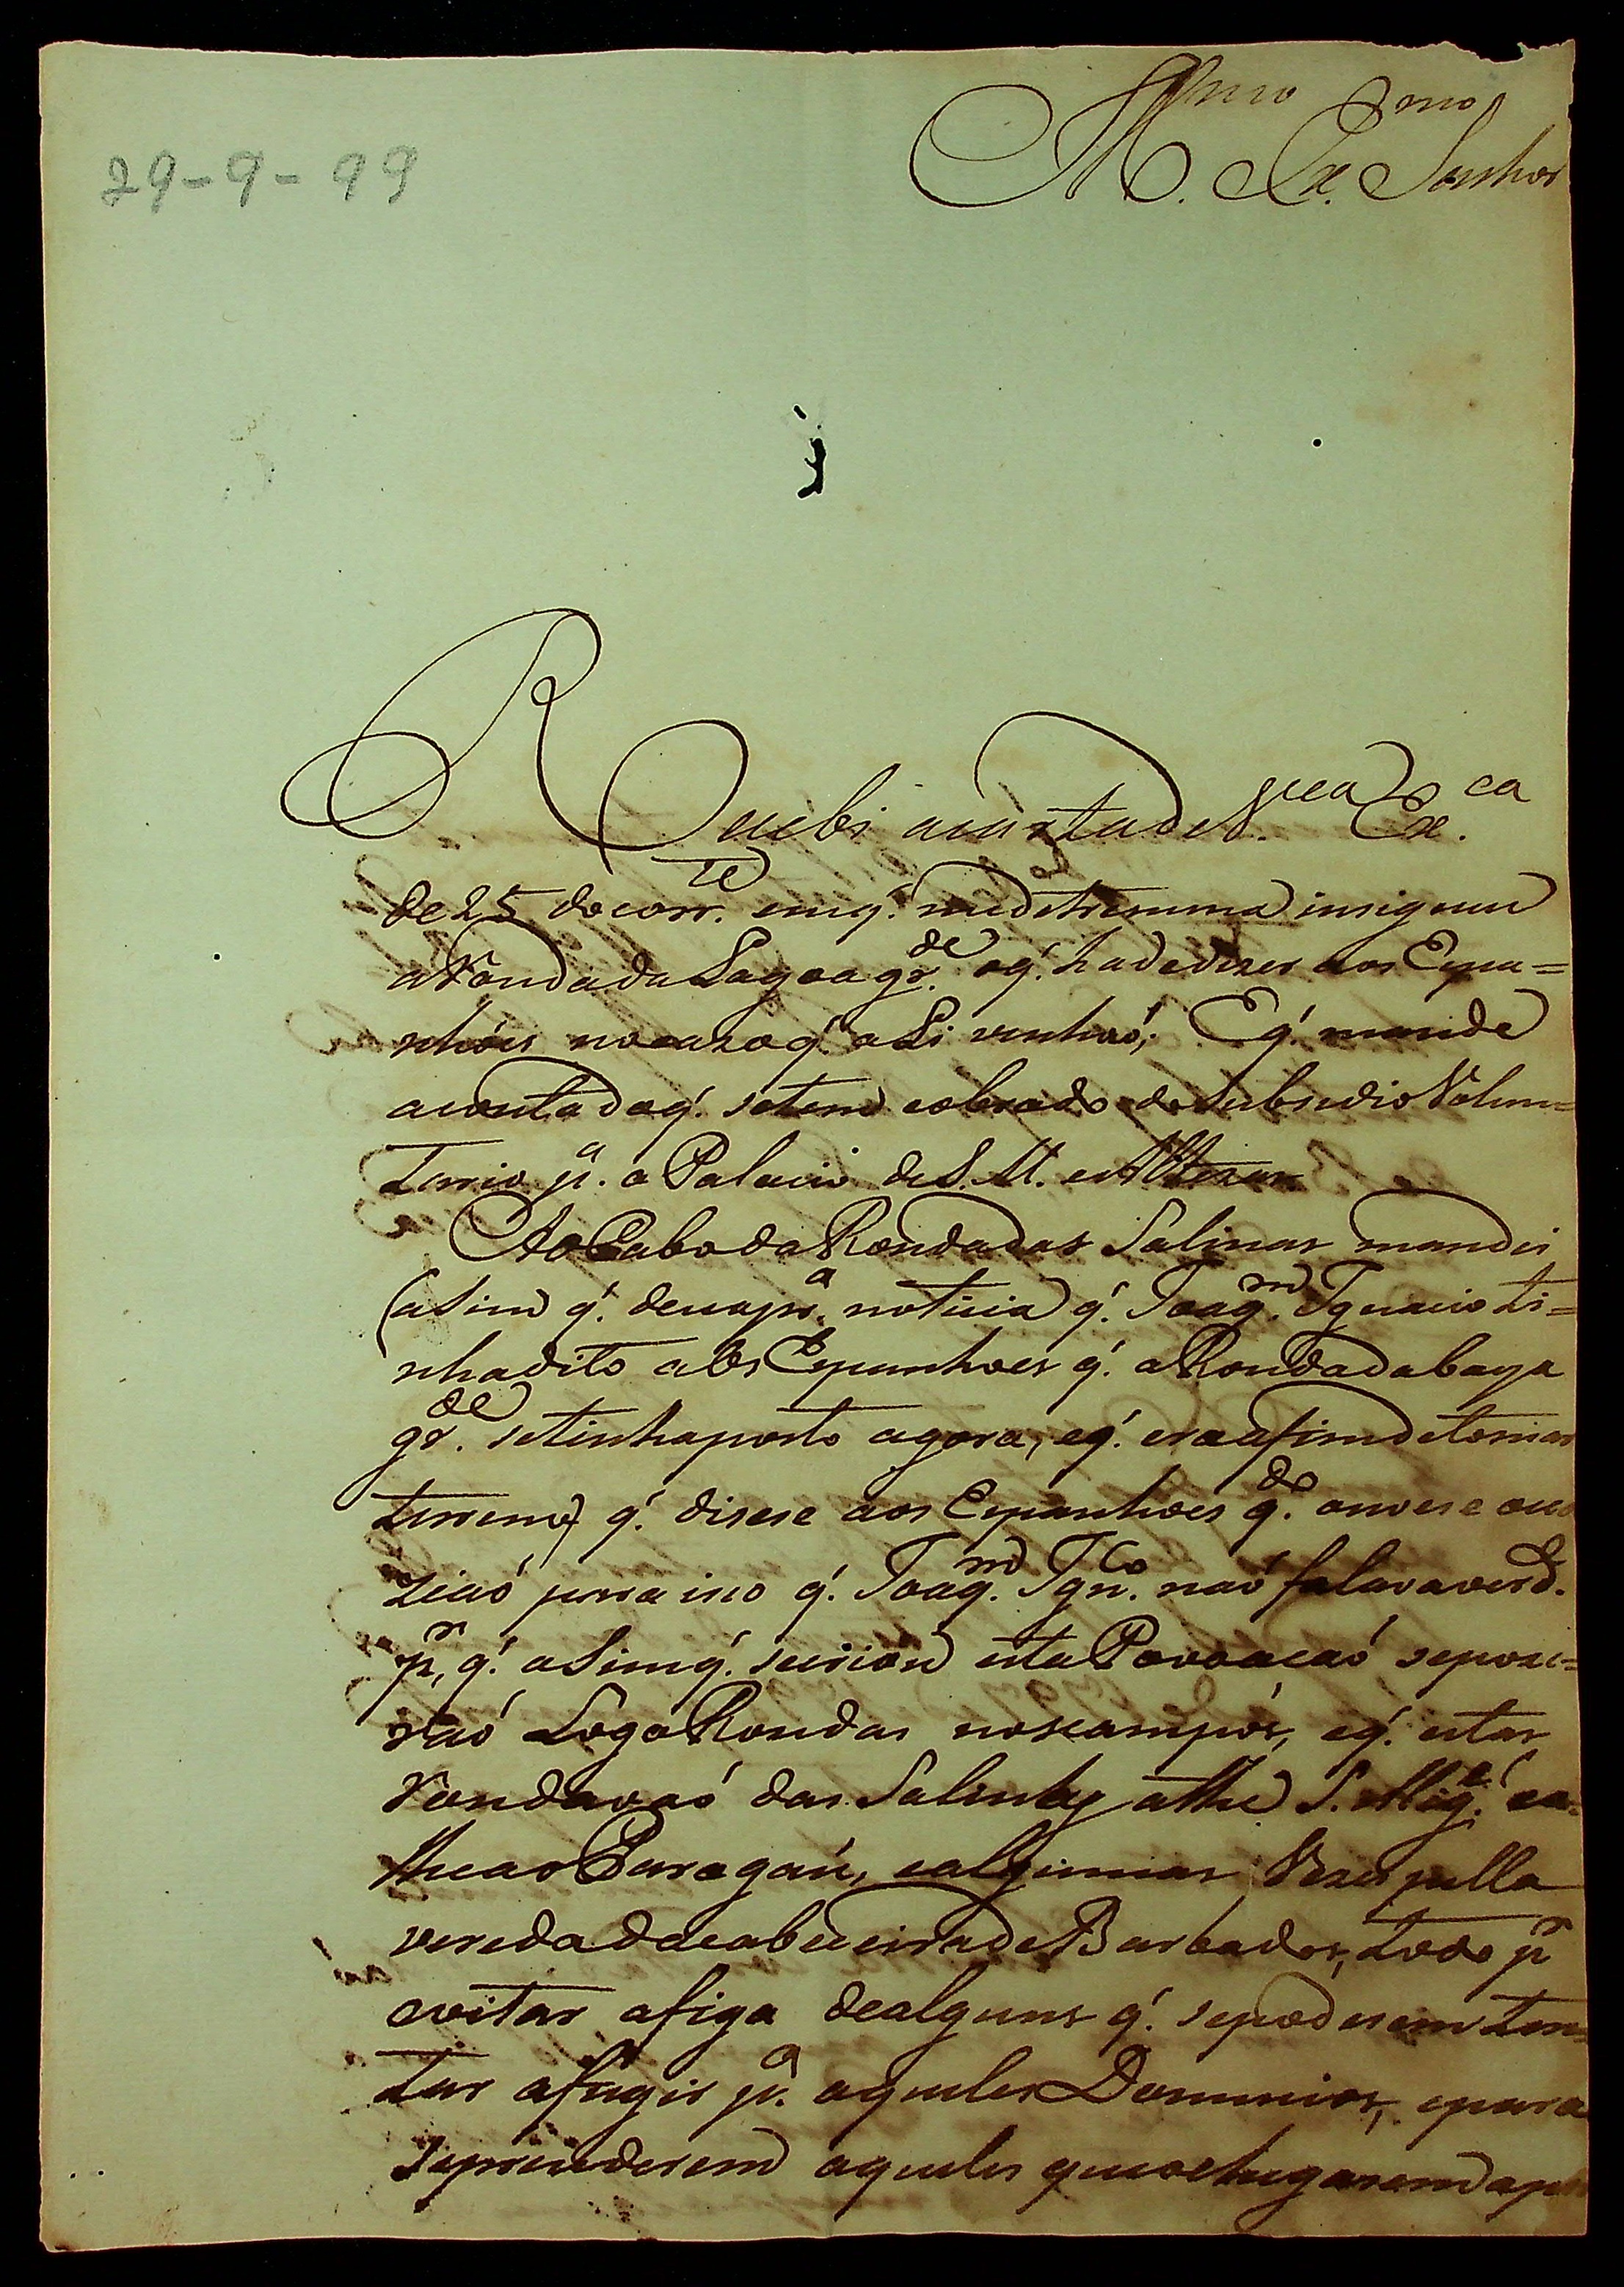 29-9-99
Illmo Exmo
Senhor
Recebi acarta de V. Ex.ca
de 25 do corr.te emq̃. me detremina insignue
a Ronda da Lagoa gr.de oq̃. hadedizer aos Espa=
nhóes nocazoq̃. aLi venhaó; Eq̃. mande
aconta doq̃. setem cobrado do Subsidio Volun=
tario p.a o Palacio de S. M. e Altezas
Ao Cabo da Ronda das Salinas mandei
(aSim q̃. deuapr.a noticia q̃. Joaq.m Ignacio ti=
nhadito aos Espanhoes q̃. a Ronda da baya
gr.de setinhaposto agora, eq̃. era afim de tomar
terreno) q̃. disese aos Espanhoes q.do ouvese oca
ziaó para iso q̃. Joaq.m Ign.co naó falavaverd.e
p.r q̃. aSimq̃. secriou esta Povoacaó sepoze=
raó Logo Rondas noscampos, eq̃. estas
Rondavaó das Salinas athe S. Mig.el ea=
theao Paragaú, ealgumas Vezes pella
vereda dacabeceirade Barbados, todo p.r
evitar afuga dealguns q̃. sepodesem ten=
tar afugir p.a aqueles Dominios, epara
seprenderem aqueles que